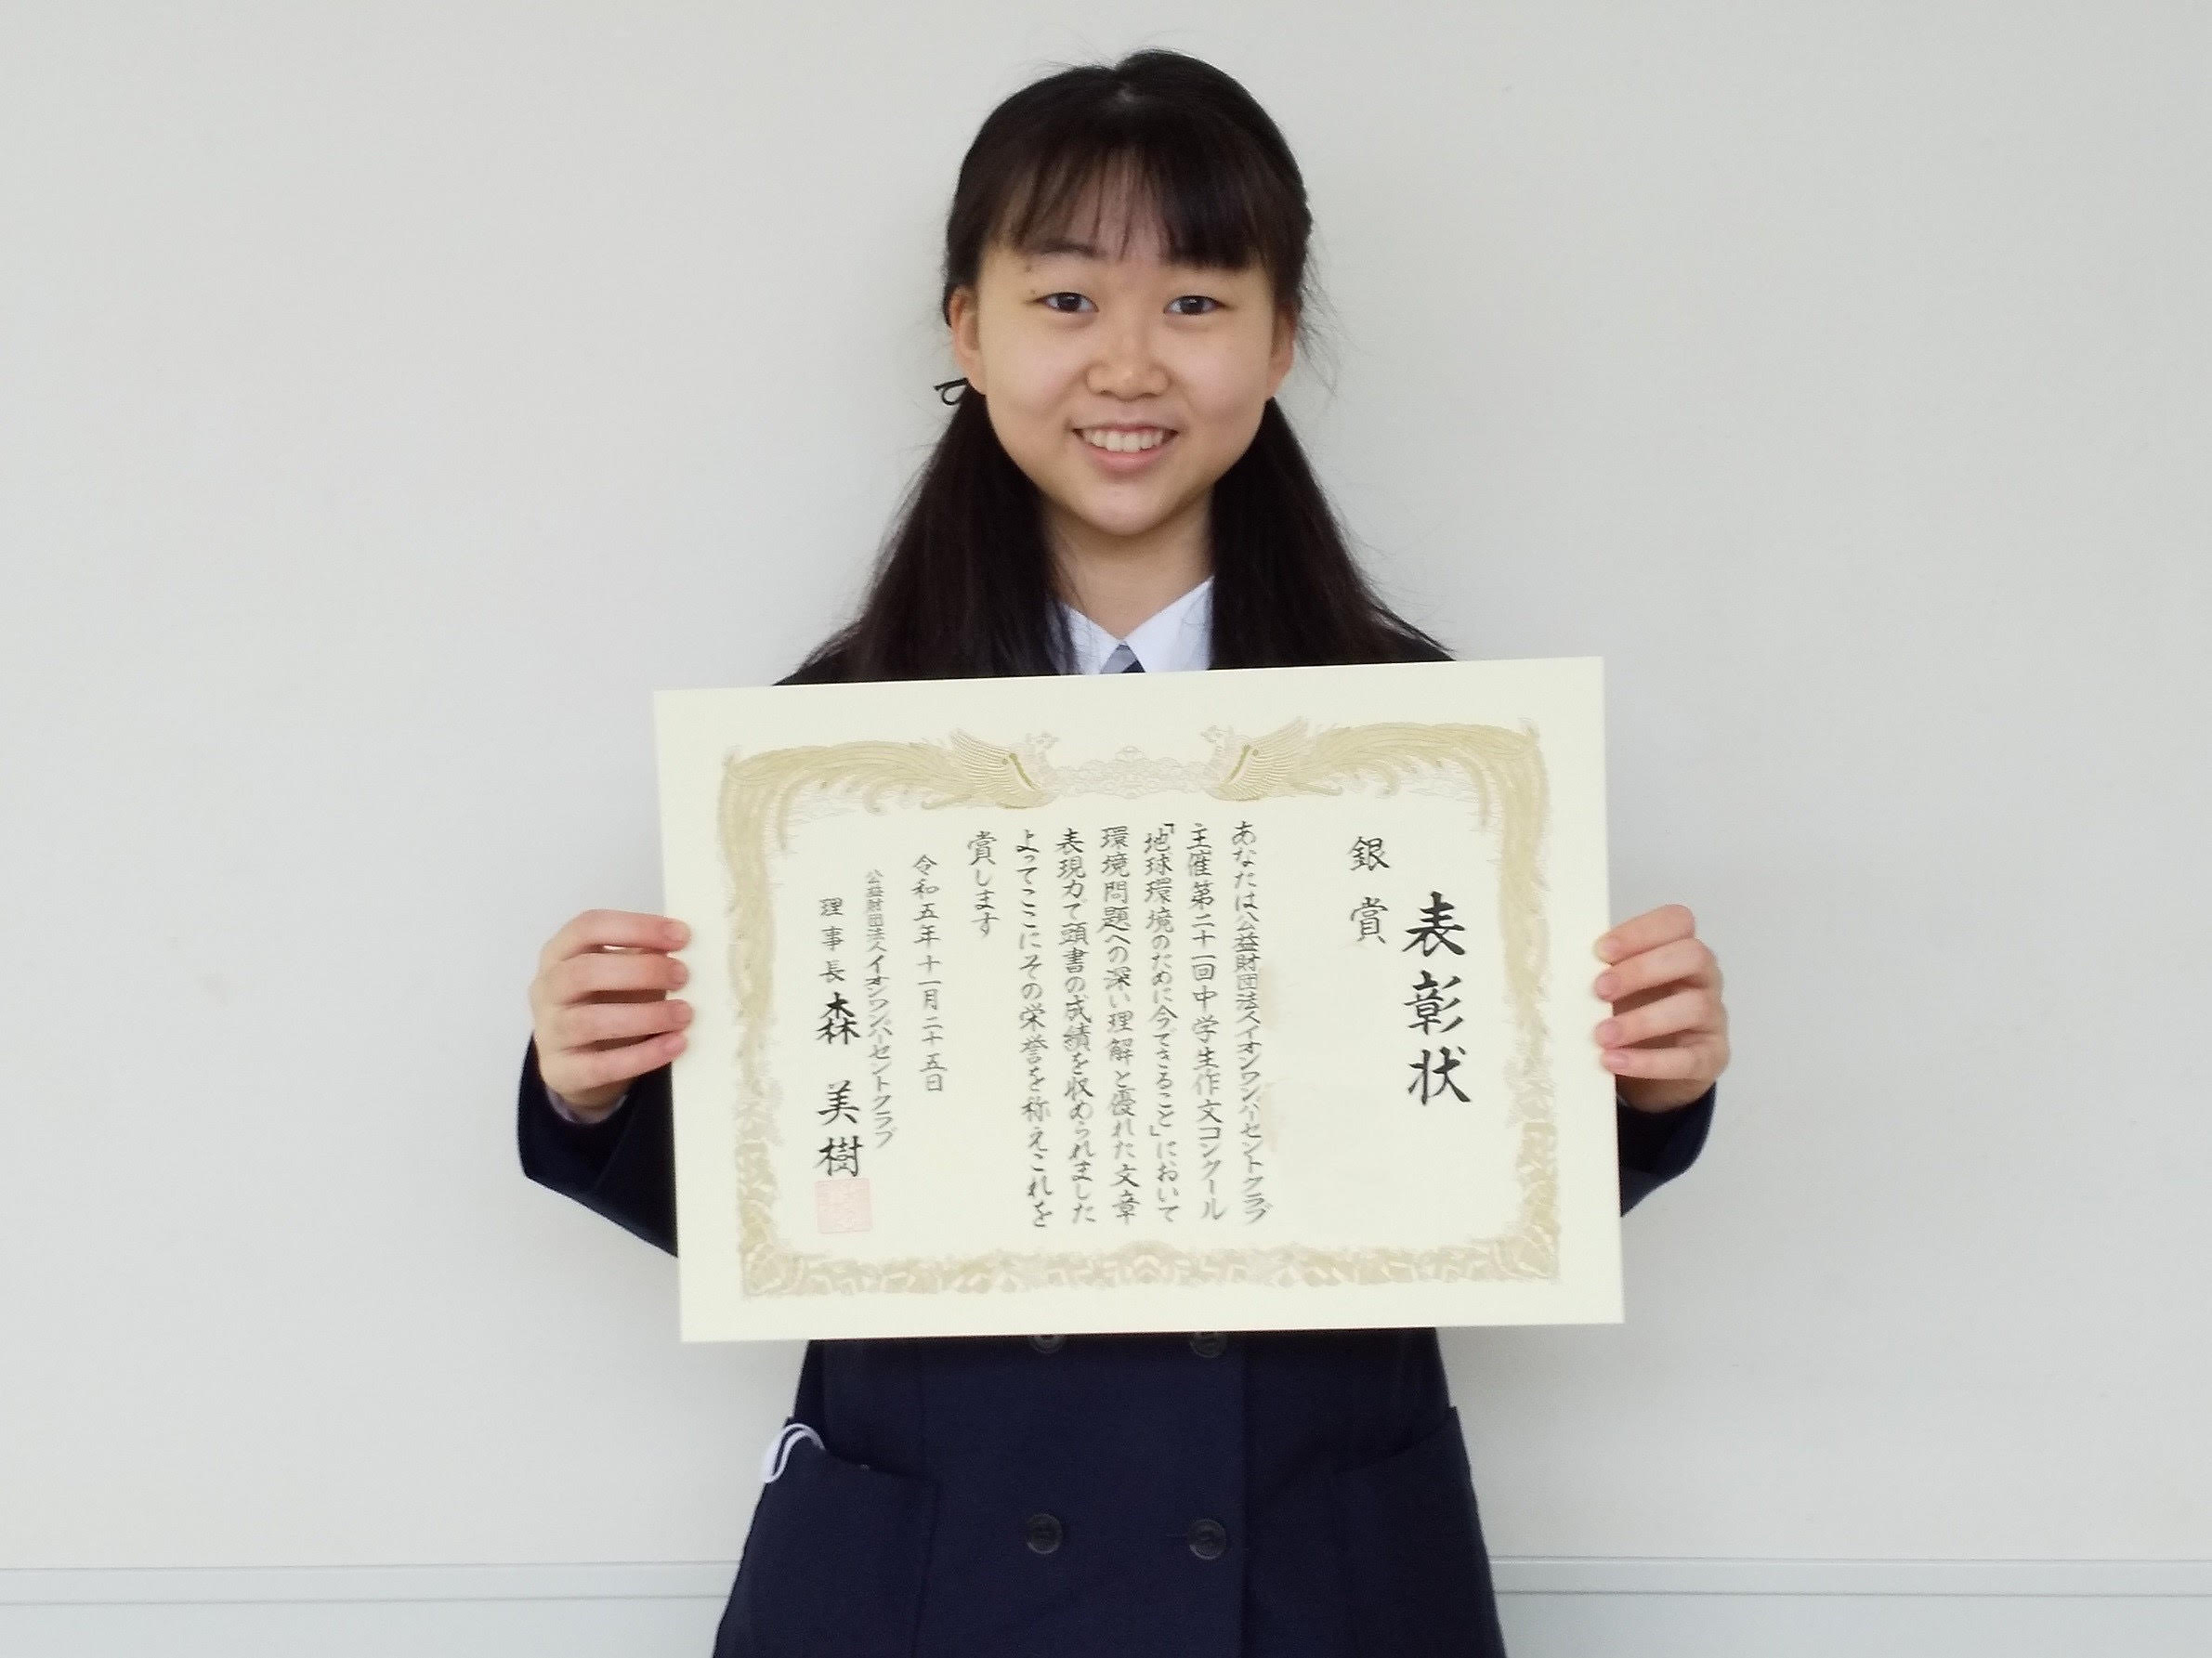 表彰状
銀賞
あなたは公益財団法人イオンワンパーセントクラブ
主催第二十一回中学生作文コンクール
「地球環境のために今できること」において
環境問題への深い理解と優れた文章
表現力で頭書の成績を収められました
よってここにその栄誉を称えこれを
賞します
令和五年十一月二十五日
公益財団法人イオンワンパーセントクラブ
理事長 森 美樹